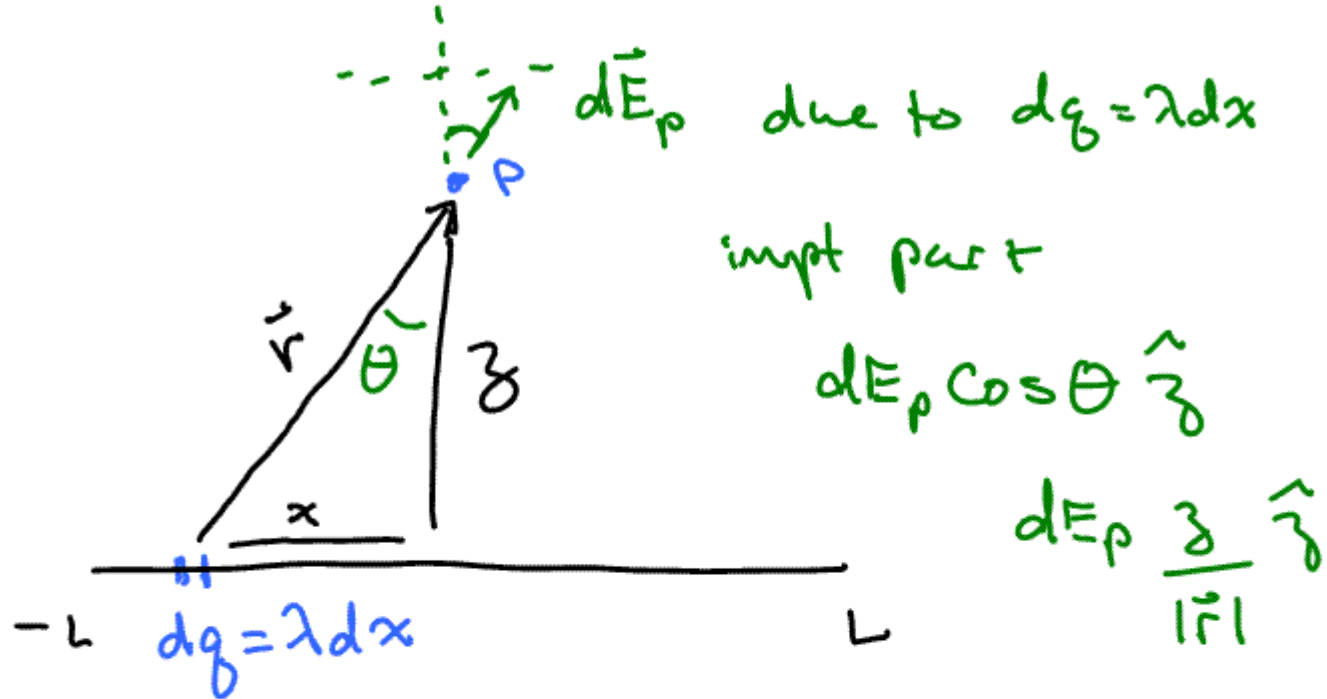 dE⃗ₚ due to dq = λdx
P
impt part
r⃗
θ
z
dEₚ Cos θ ẑ
x
dEₚ z/|r⃗| ẑ
-L
dq = λdx
L